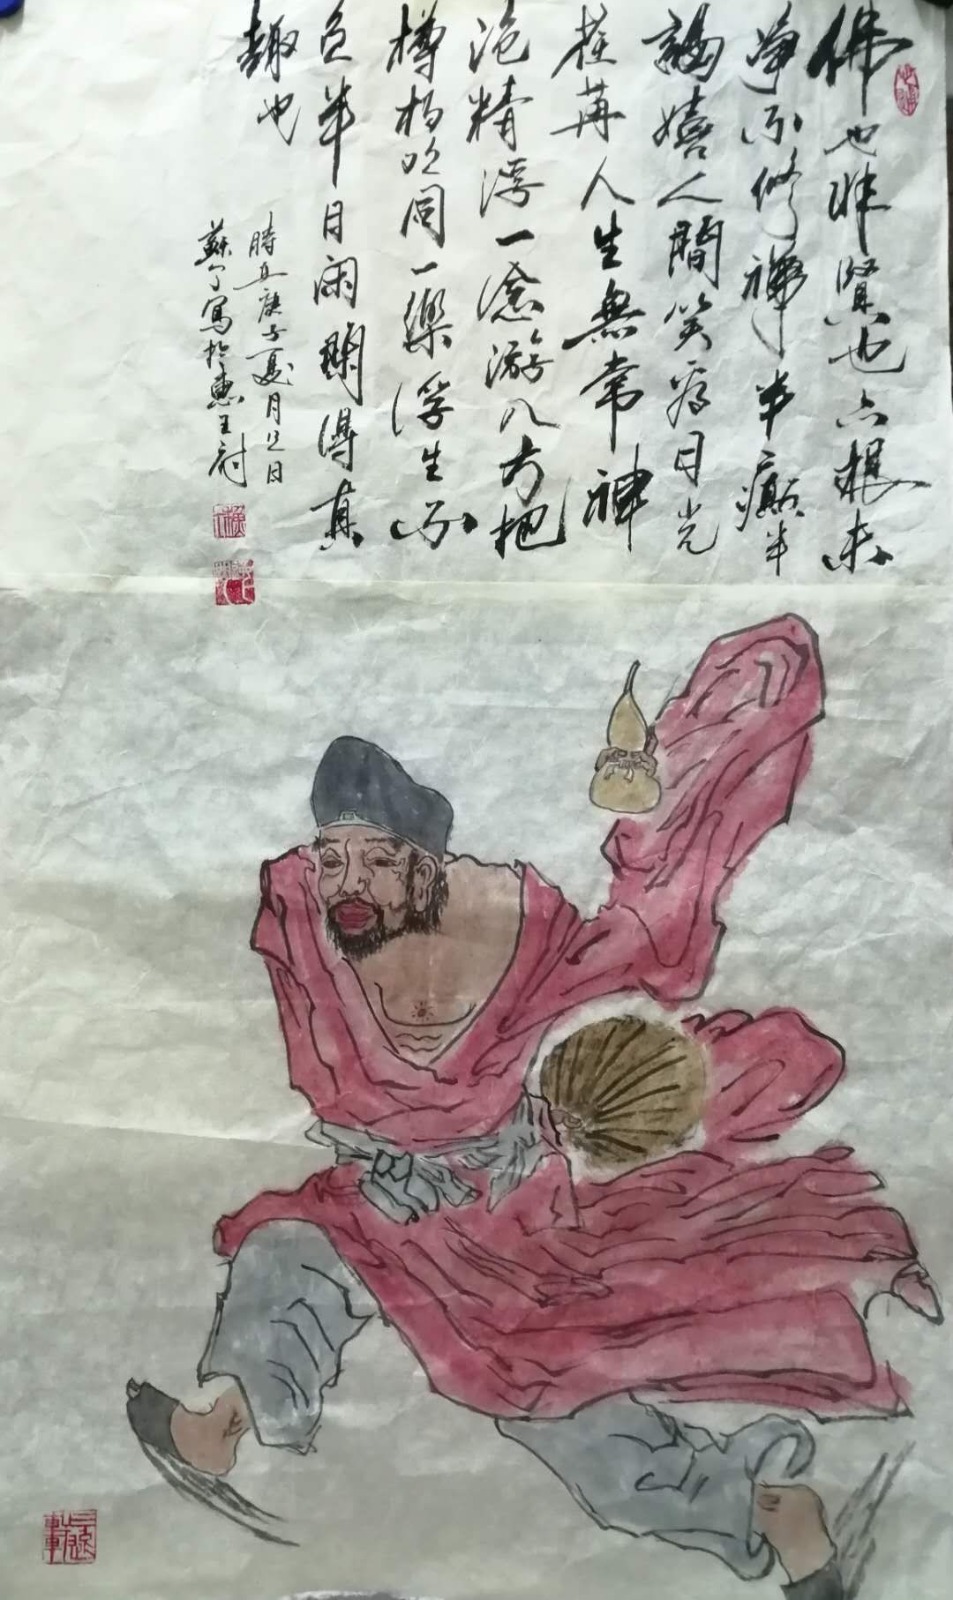 佛也非賢也六根未
净不修禅半癫半
嬉人間笑看日光
荏苒人生無常神
精浮一念游八方把
樽相同一樂浮生不
負半日闲得真
趣也
時在庚子夏月日
蘇寫於惠王府